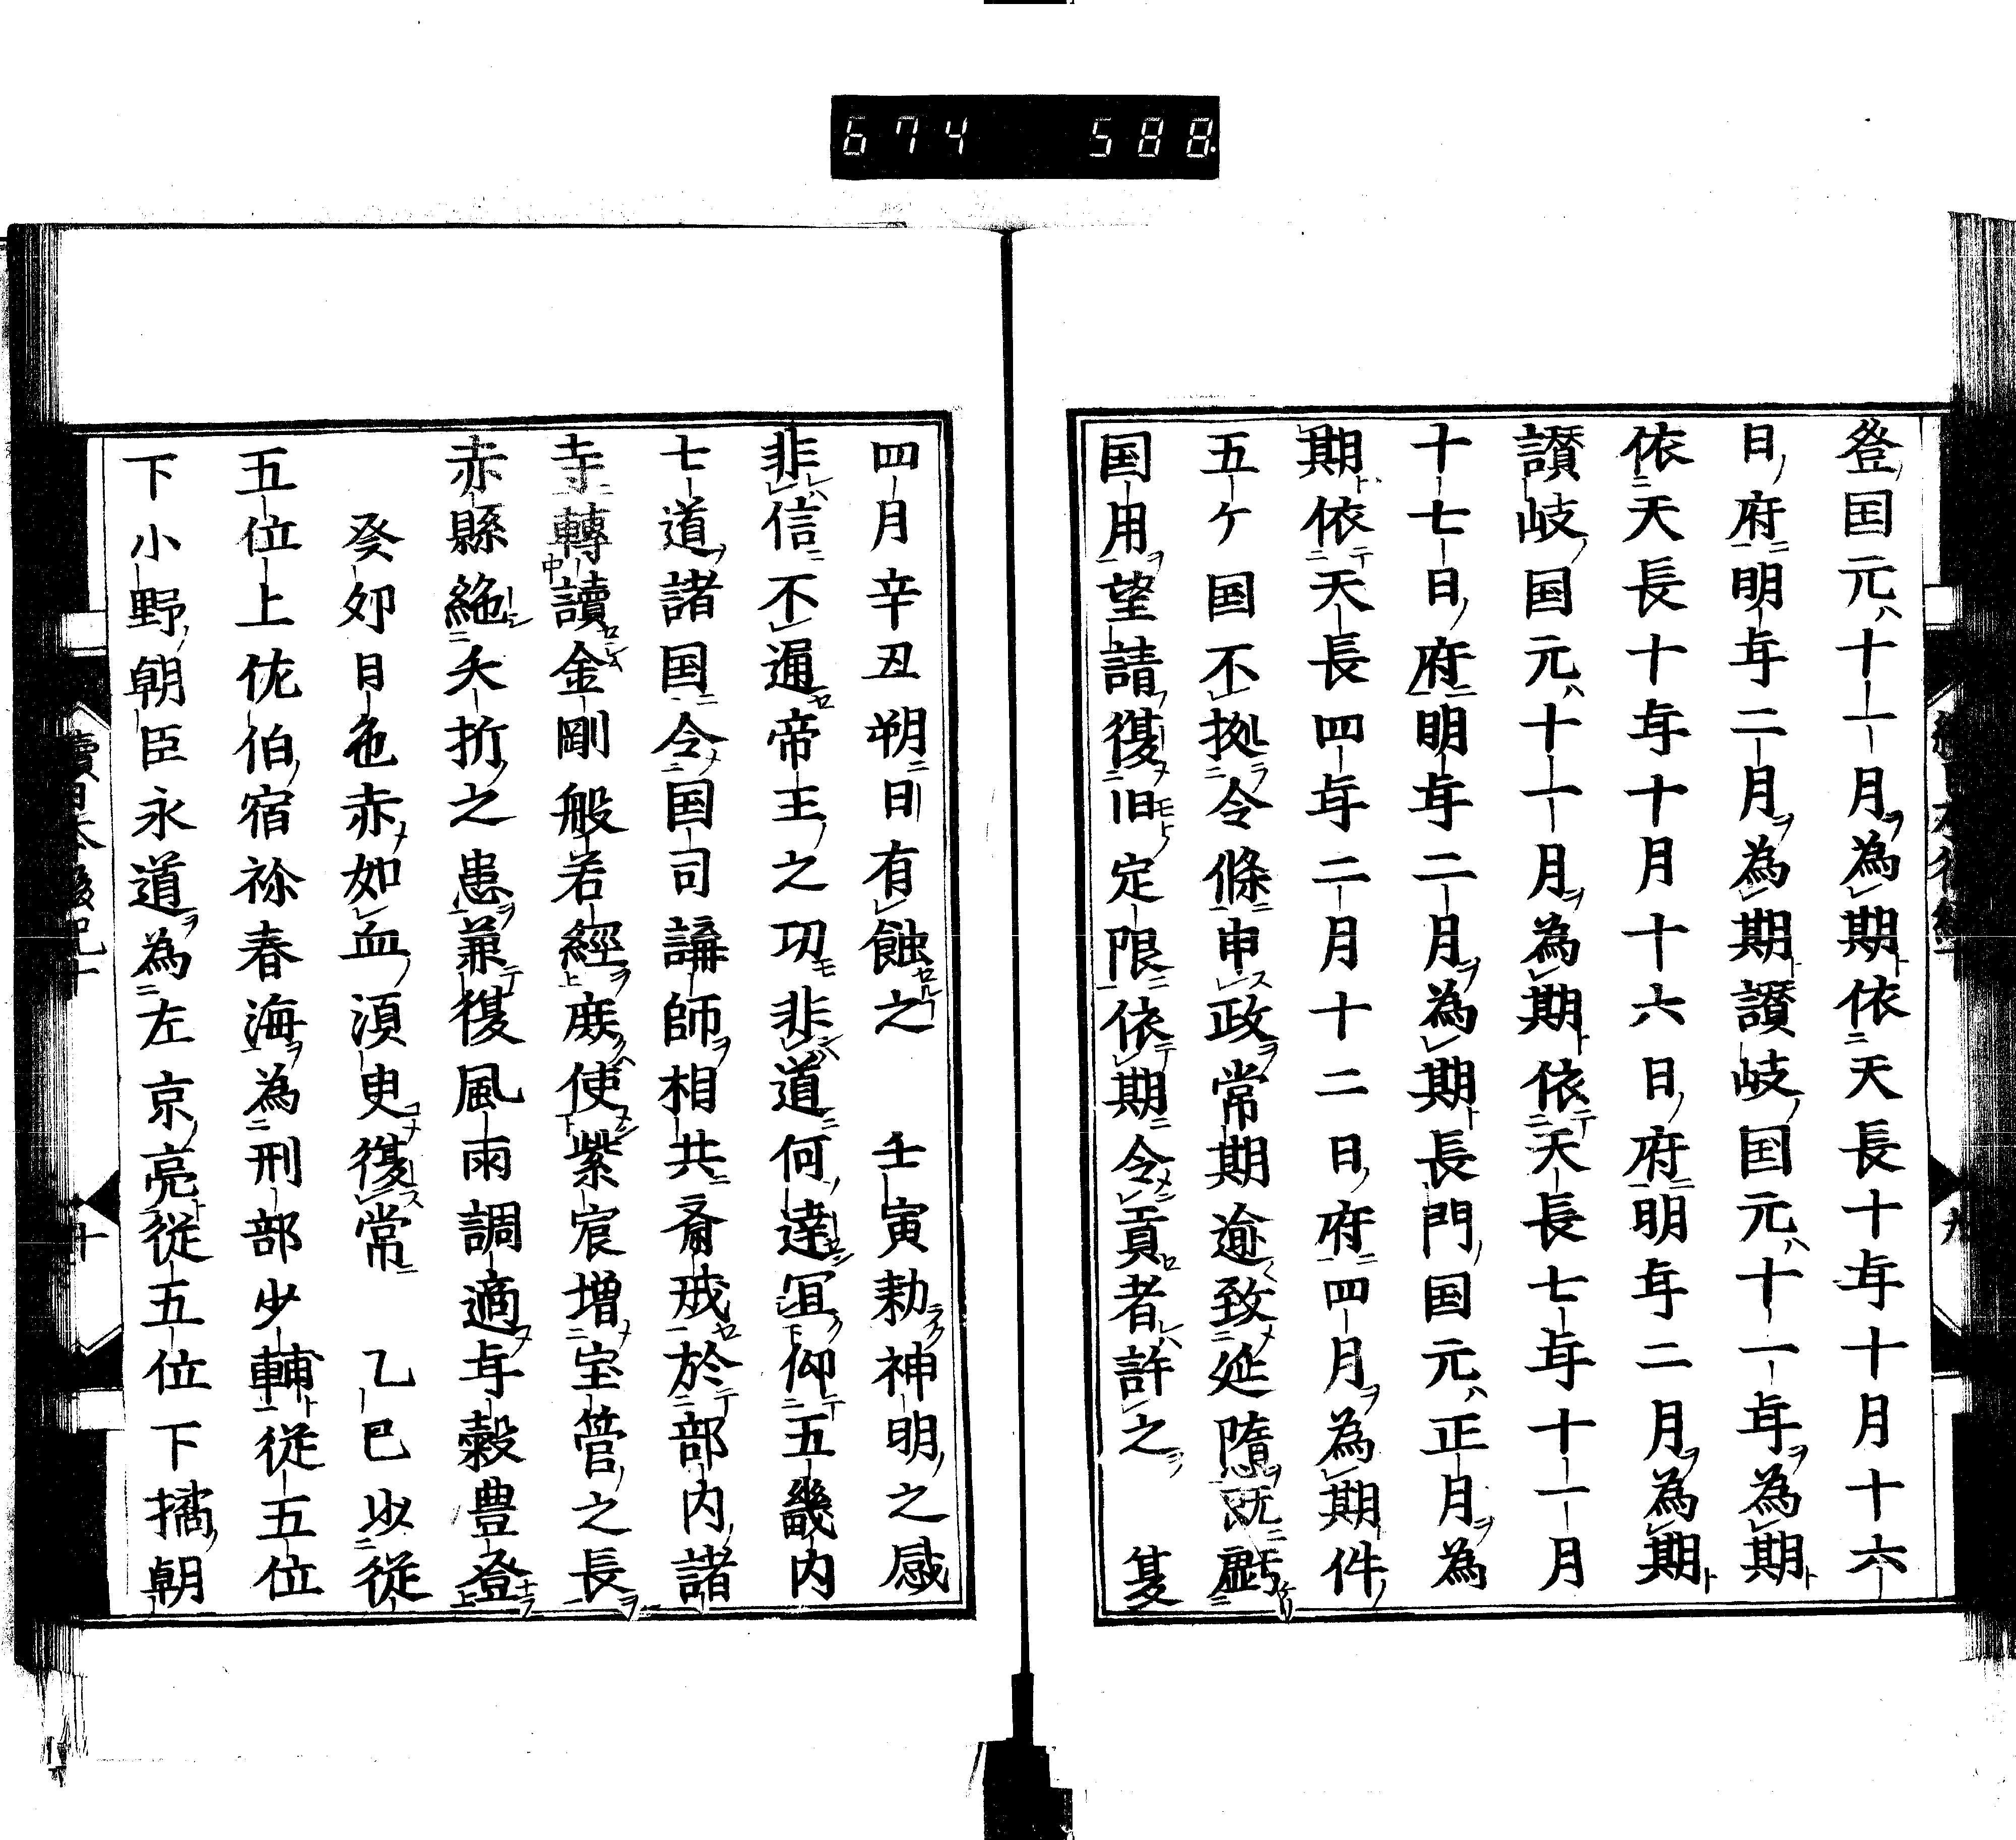 登国元十一月為期依天長十年十月十六
日府明年二月為期讃岐国元十一年為期
依天長十年十月十六日府明年二月為期
讃岐国元十一月為期依天長七年十一月
十七日府明年二月為期長門国元正月為
期依天長四年二月十二日府四月為期件
五ケ国不拠令條申政常期逾致延隳既虧
国用望請復旧定限依期令貢者許之　夏
四月辛丑朔日有蝕之　壬寅勅神明之感
非信不通帝王之功非道何達冝仰五畿内
七道諸国令国司講師相共斎戒於部内諸
寺轉讀金剛般若經庶使紫宸増宝筭之長
赤縣絶夭折之患兼復風雨調適年穀豊登
癸夘日色赤如血須臾復常　乙巳以從
五位上佐伯宿祢春海為刑部少輔從五位
下小野朝臣永道為左京亮從五位下橘朝
674 588